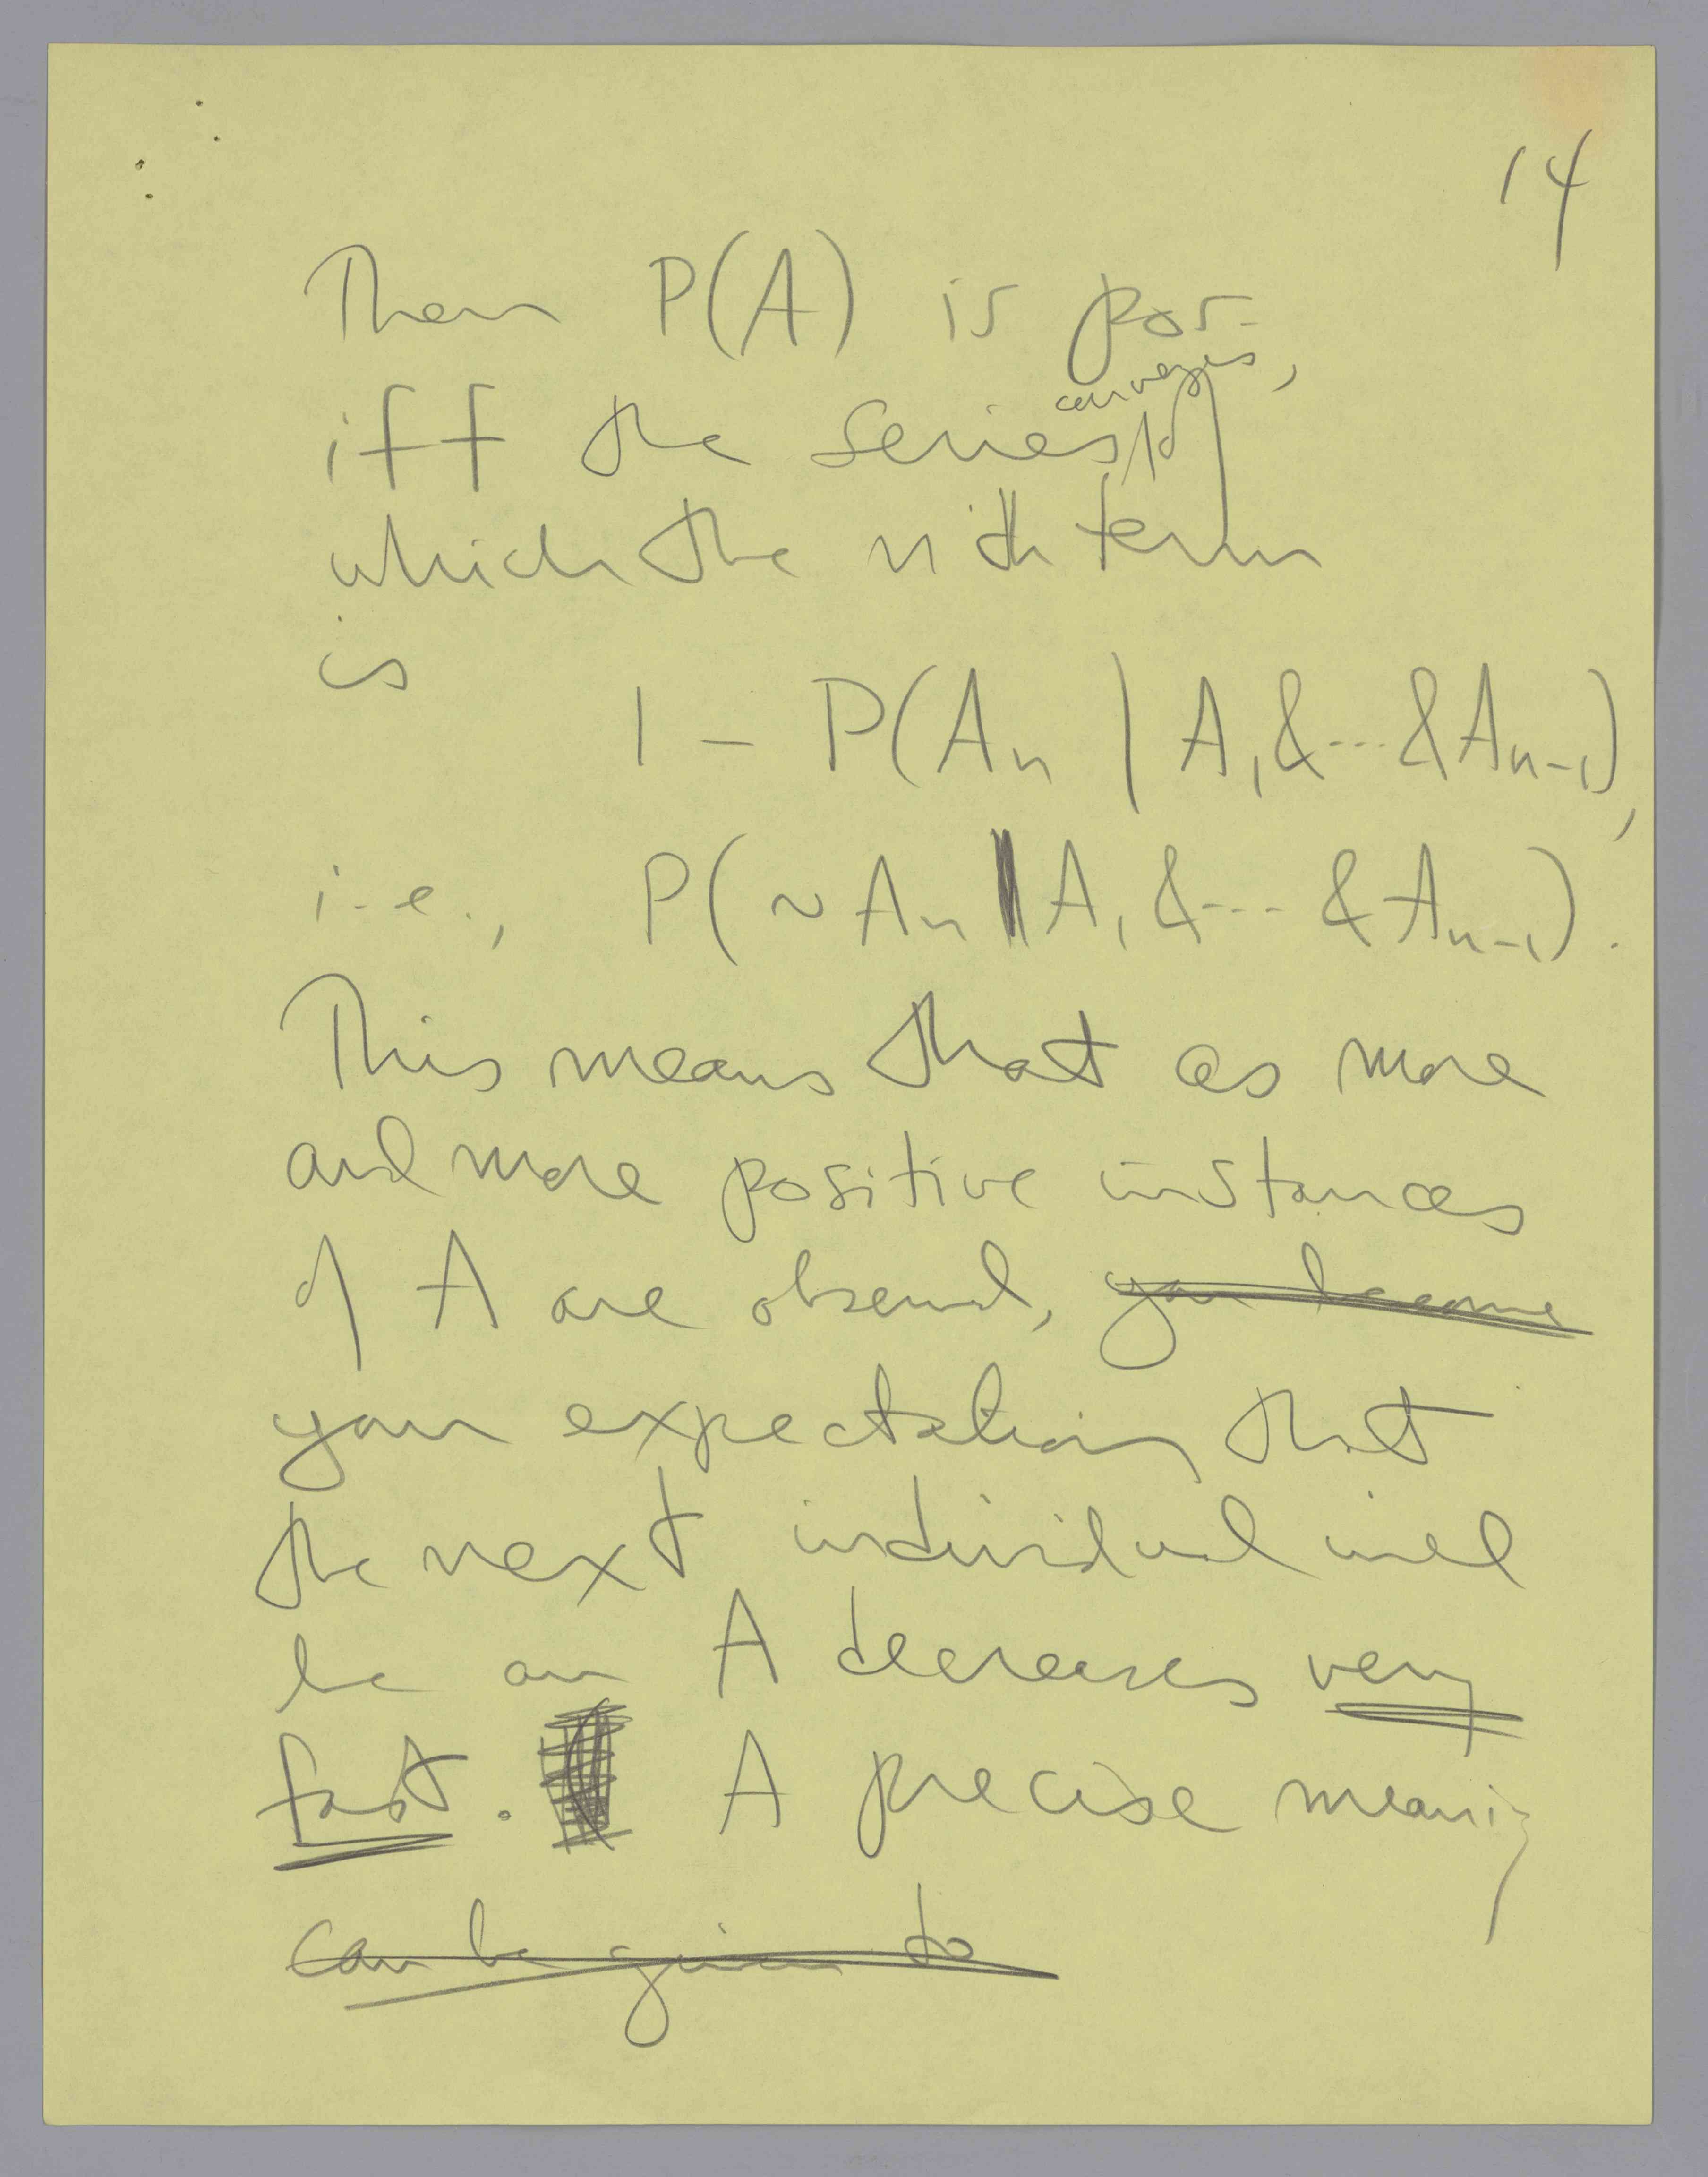 14
Then P(A) is pos-
converges,
iff the series of
which the nth term
is
1 - P(An | A1 &---& An-1),
i.e., P(~An | A1 &--- & An-1).
This means that as more
and more positive instances
of A are observed, you become
your expectation that
the next individual will
be an A decreases very
fast. A precise meaning
can be given to